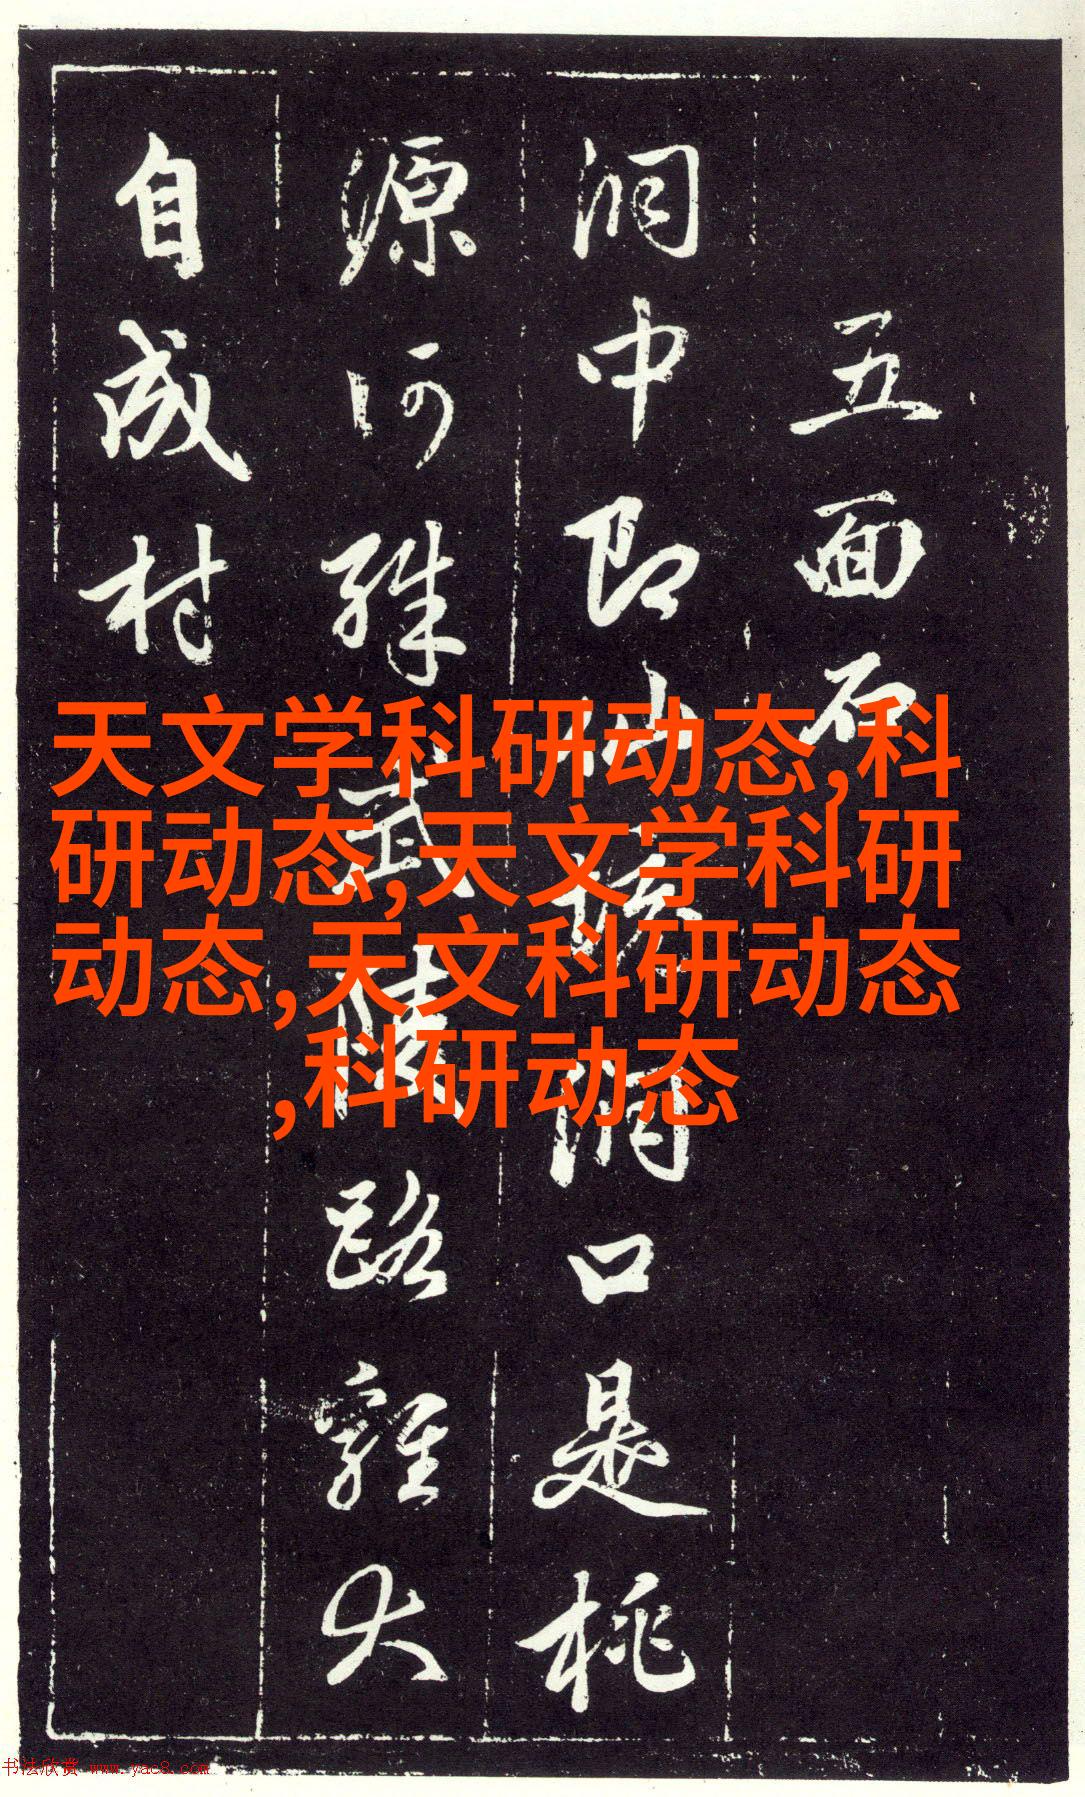 五面石
洞中即仙境洞口是桃
源何殊武陵路雞犬
自成村
天文学科研动态,科
研动态,天文学科研
动态,天文科研动态
,科研动态
书法欣赏 www.yac8.com